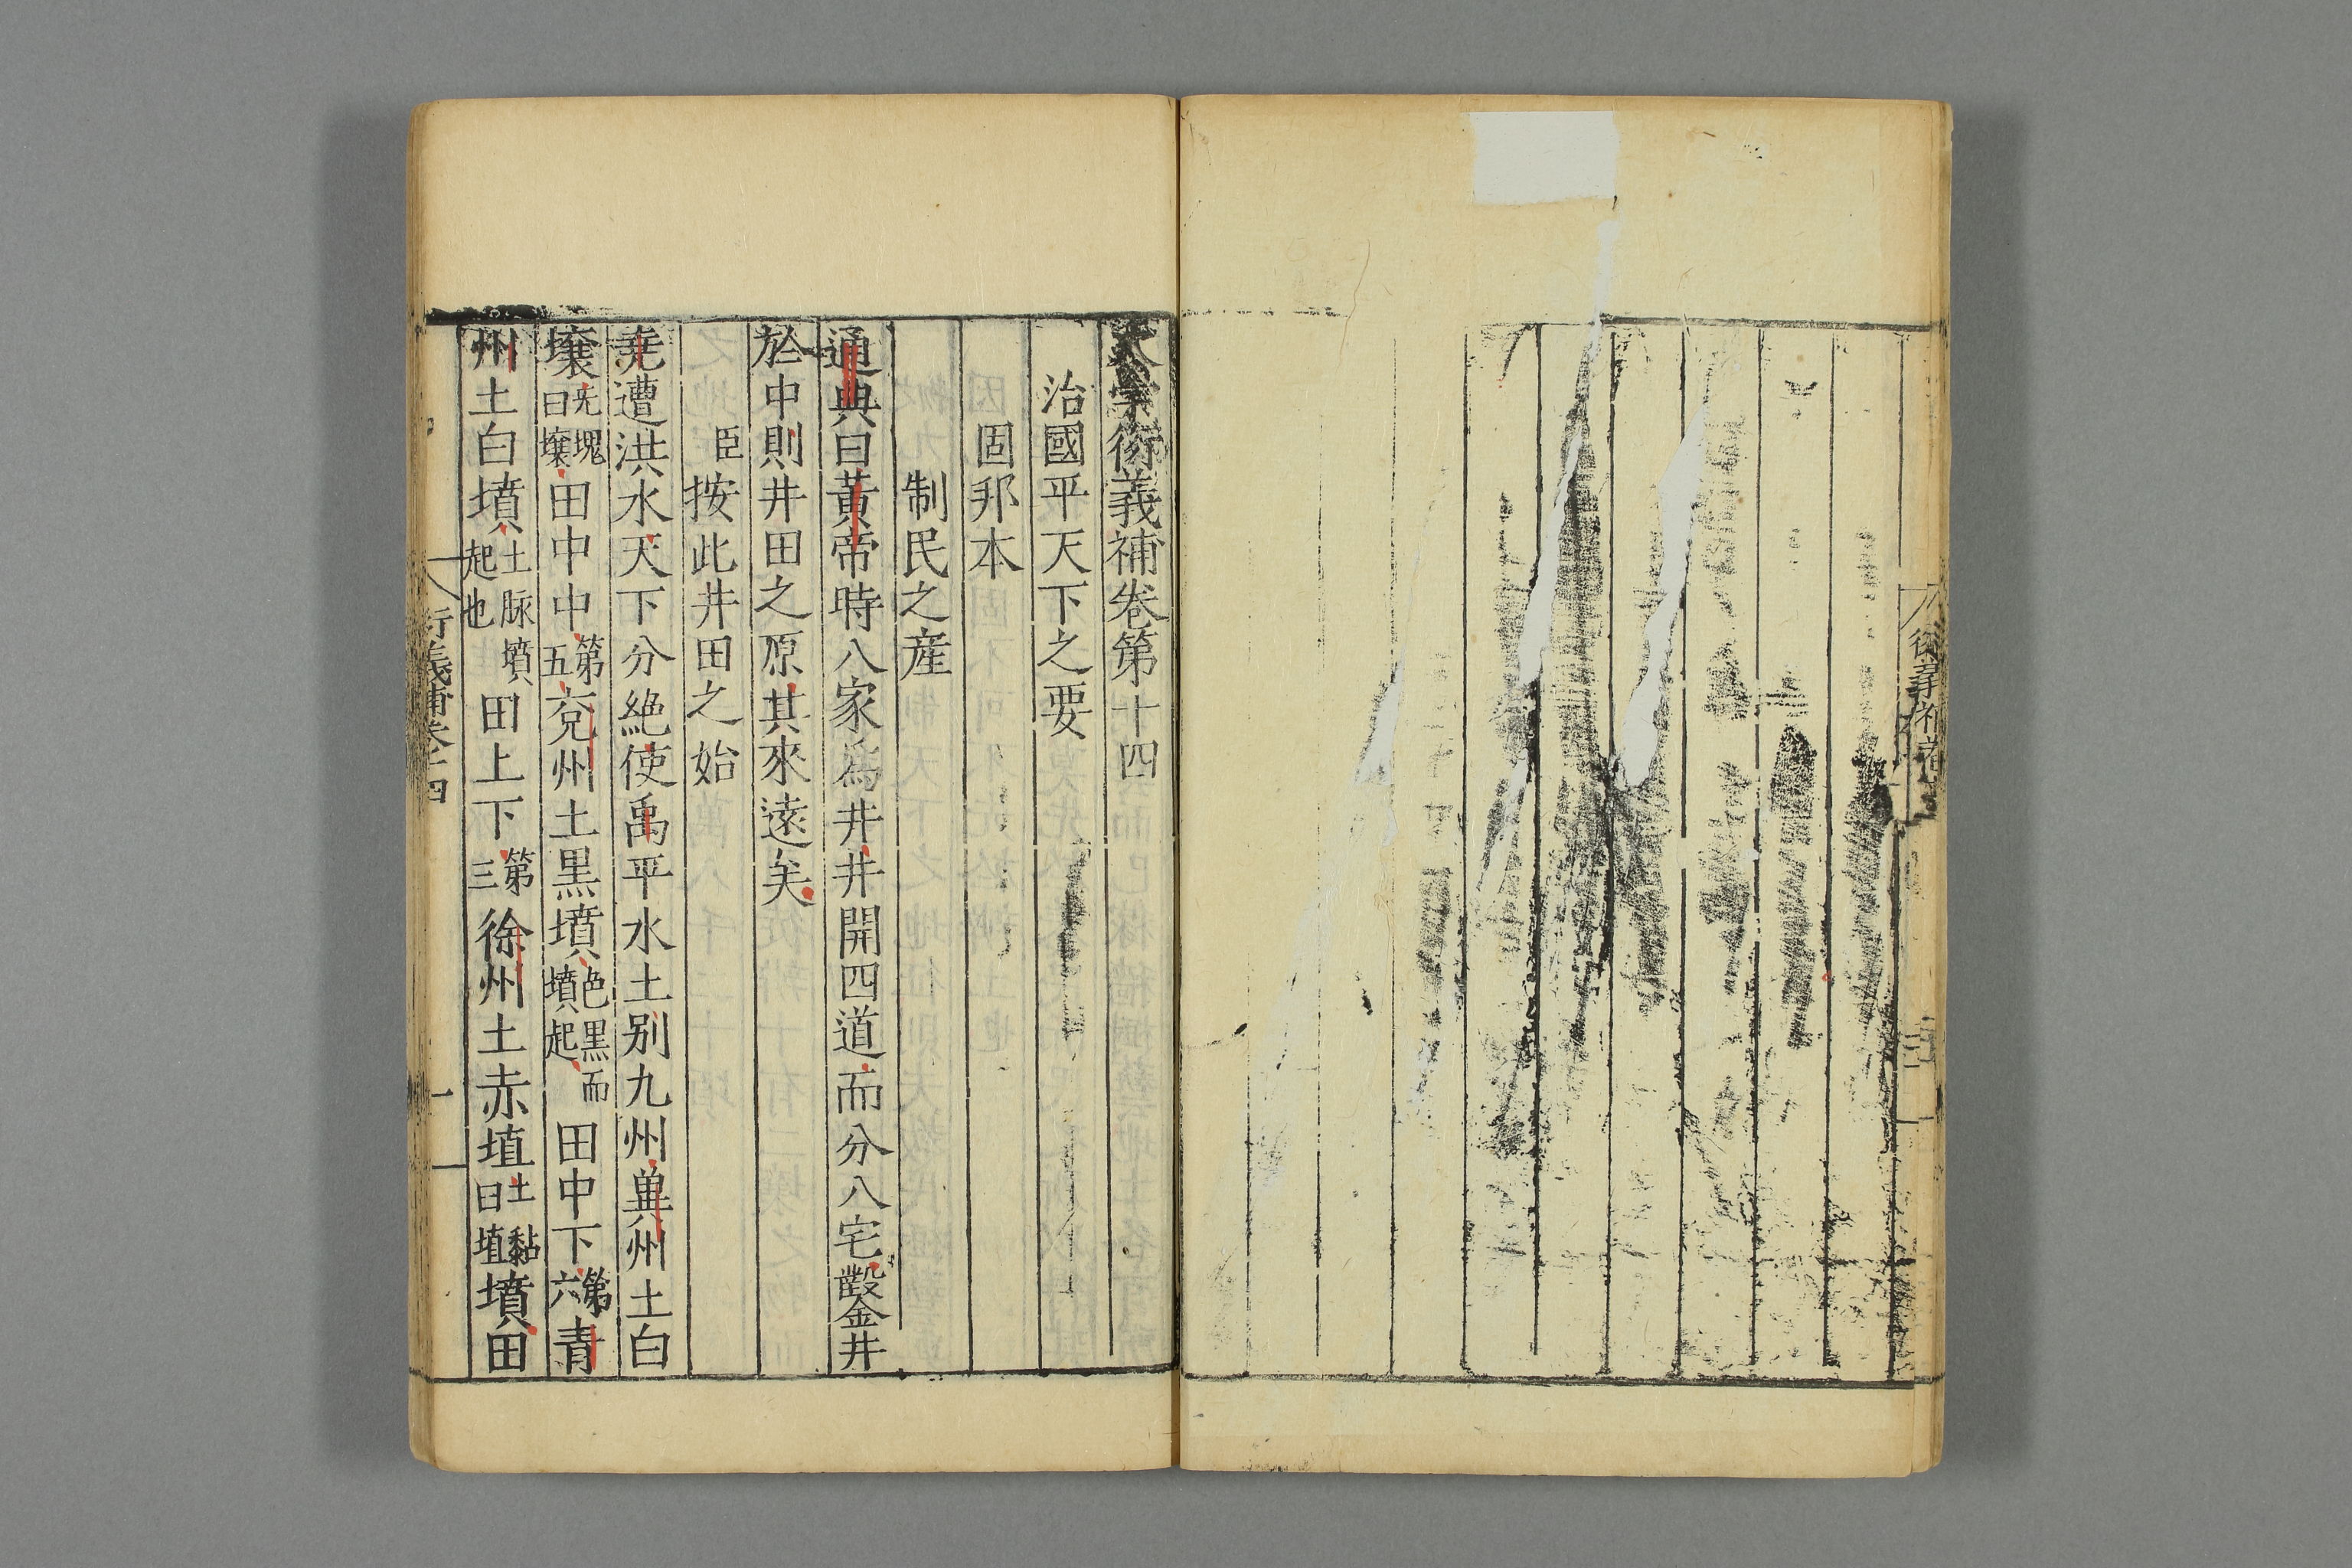 大學衍義補卷第十四
治國平天下之要
固邦本
制民之産
通典曰黃帝時八家爲井井開四道而分八宅鑿金井
於中則井田之原其來遠矣
臣按此井田之始
堯遭洪水天下分絶使禹平水土别九州兾州土白
壤无塊曰壤田中中第五兗州土黒墳色黒而墳起田中下第六青
州土白墳土脉墳起也田上下第三徐州土赤埴土黏曰埴墳田
衍義補卷十四
一